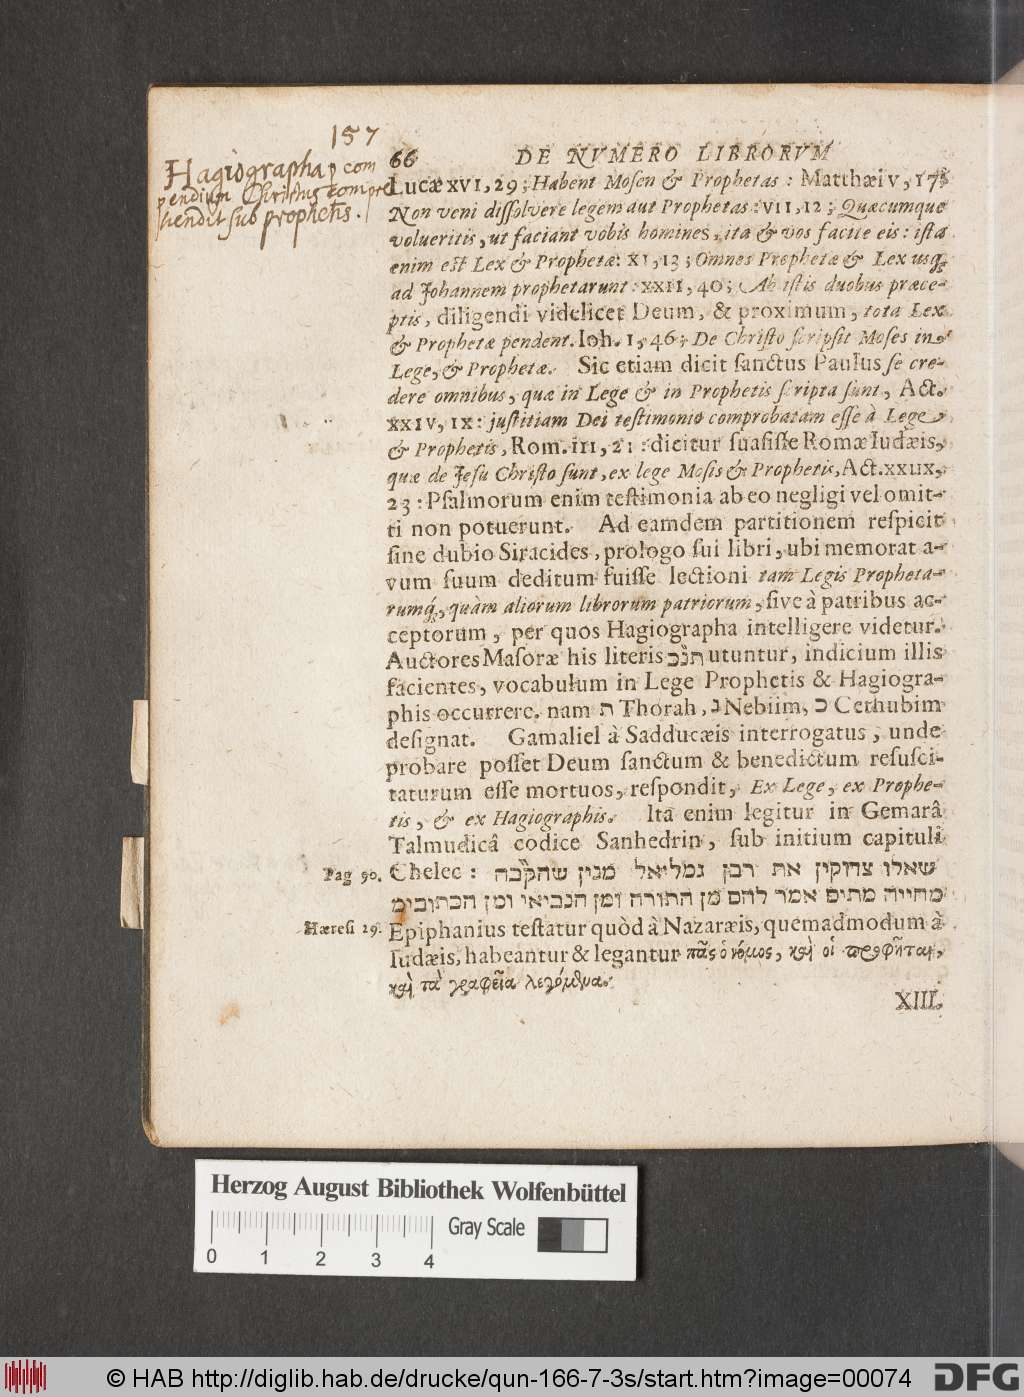 157
Hagiographa p com
pendium Christus compre
hendit sub prophetis.
66 DE NVMERO LIBRORVM
Lucæ XVI, 29; Habent Mosen & Prophetas: Matthæi V, 17;
Non veni dissolvere legem aut Prophetas: VII, 12; Quæcumque
volueritis, ut faciant vobis homines, ita & vos facite eis: ista
enim est Lex & Prophetæ: XI, 13; Omnes Prophetæ & Lex usq;
ad Johannem prophetarunt: XXII, 40; Ab istis duobus præce-
ptis, diligendi videlicet Deum, & proximum, tota Lex
& Prophetæ pendent. Ioh. I, 46; De Christo scripsit Moses in
Lege, & Prophetæ. Sic etiam dicit sanctus Paulus se cre-
dere omnibus, quæ in Lege & in Prophetis scripta sunt, Act.
XXIV, IX: justitiam Dei testimonio comprobatam esse à Lege
& Prophetis, Rom. III, 21: dicitur suasisse Romæ Iudæis,
quæ de Jesu Christo sunt, ex lege Mosis & Prophetis, Act. XXIIX,
23: Psalmorum enim testimonia ab eo negligi vel omit-
ti non potuerunt. Ad eamdem partitionem respicit
sine dubio Siracides, prologo sui libri, ubi memorat a-
vum suum deditum fuisse lectioni tam Legis Propheta-
rumq;, quàm aliorum librorum patriorum, sive à patribus ac-
ceptorum, per quos Hagiographa intelligere videtur.
Auctores Masoræ his literis תנ״כ utuntur, indicium illis
facientes, vocabulum in Lege Prophetis & Hagiogra-
phis occurrere. nam ת Thorah, נ Nebiim, כ Cethubim
designat. Gamaliel à Sadducæis interrogatus, unde
probare posset Deum sanctum & benedictum resusci-
taturum esse mortuos, respondit, Ex Lege, ex Prophe-
tis, & ex Hagiographis. Ita enim legitur in Gemarâ
Talmudicâ codice Sanhedrin, sub initium capituli
Pag 90. Chelec: שאלו צדוקין את רבן גמליאל מנין שהק״בה
מחייה מתים אמר להם מן התורה ומן הנביאו ומן הכתובימ
Hæresi 29. Epiphanius testatur quòd à Nazaræis, quemadmodum à
Iudæis, habeantur & legantur πᾶς ὁ νόμος, καὶ οἱ προφῆται,
καὶ τὰ γραφεῖα λεγόμενα.
XIII.
Herzog August Bibliothek Wolfenbüttel
Gray Scale
0 1 2 3 4
© HAB http://diglib.hab.de/drucke/qun-166-7-3s/start.htm?image=00074
DFG